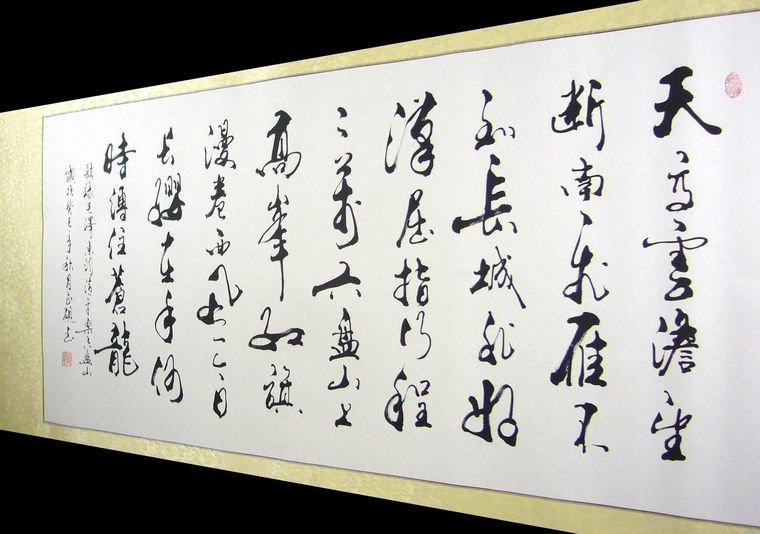 天高雲澹望
断南飛雁不
到長城非好
漢屈指行程
二萬六盤山上
高峯红旗
漫卷西风今日
長纓在手何
時縛住蒼龍
敬錄毛澤東詞清平樂六盤山
歲次癸巳年秋月書